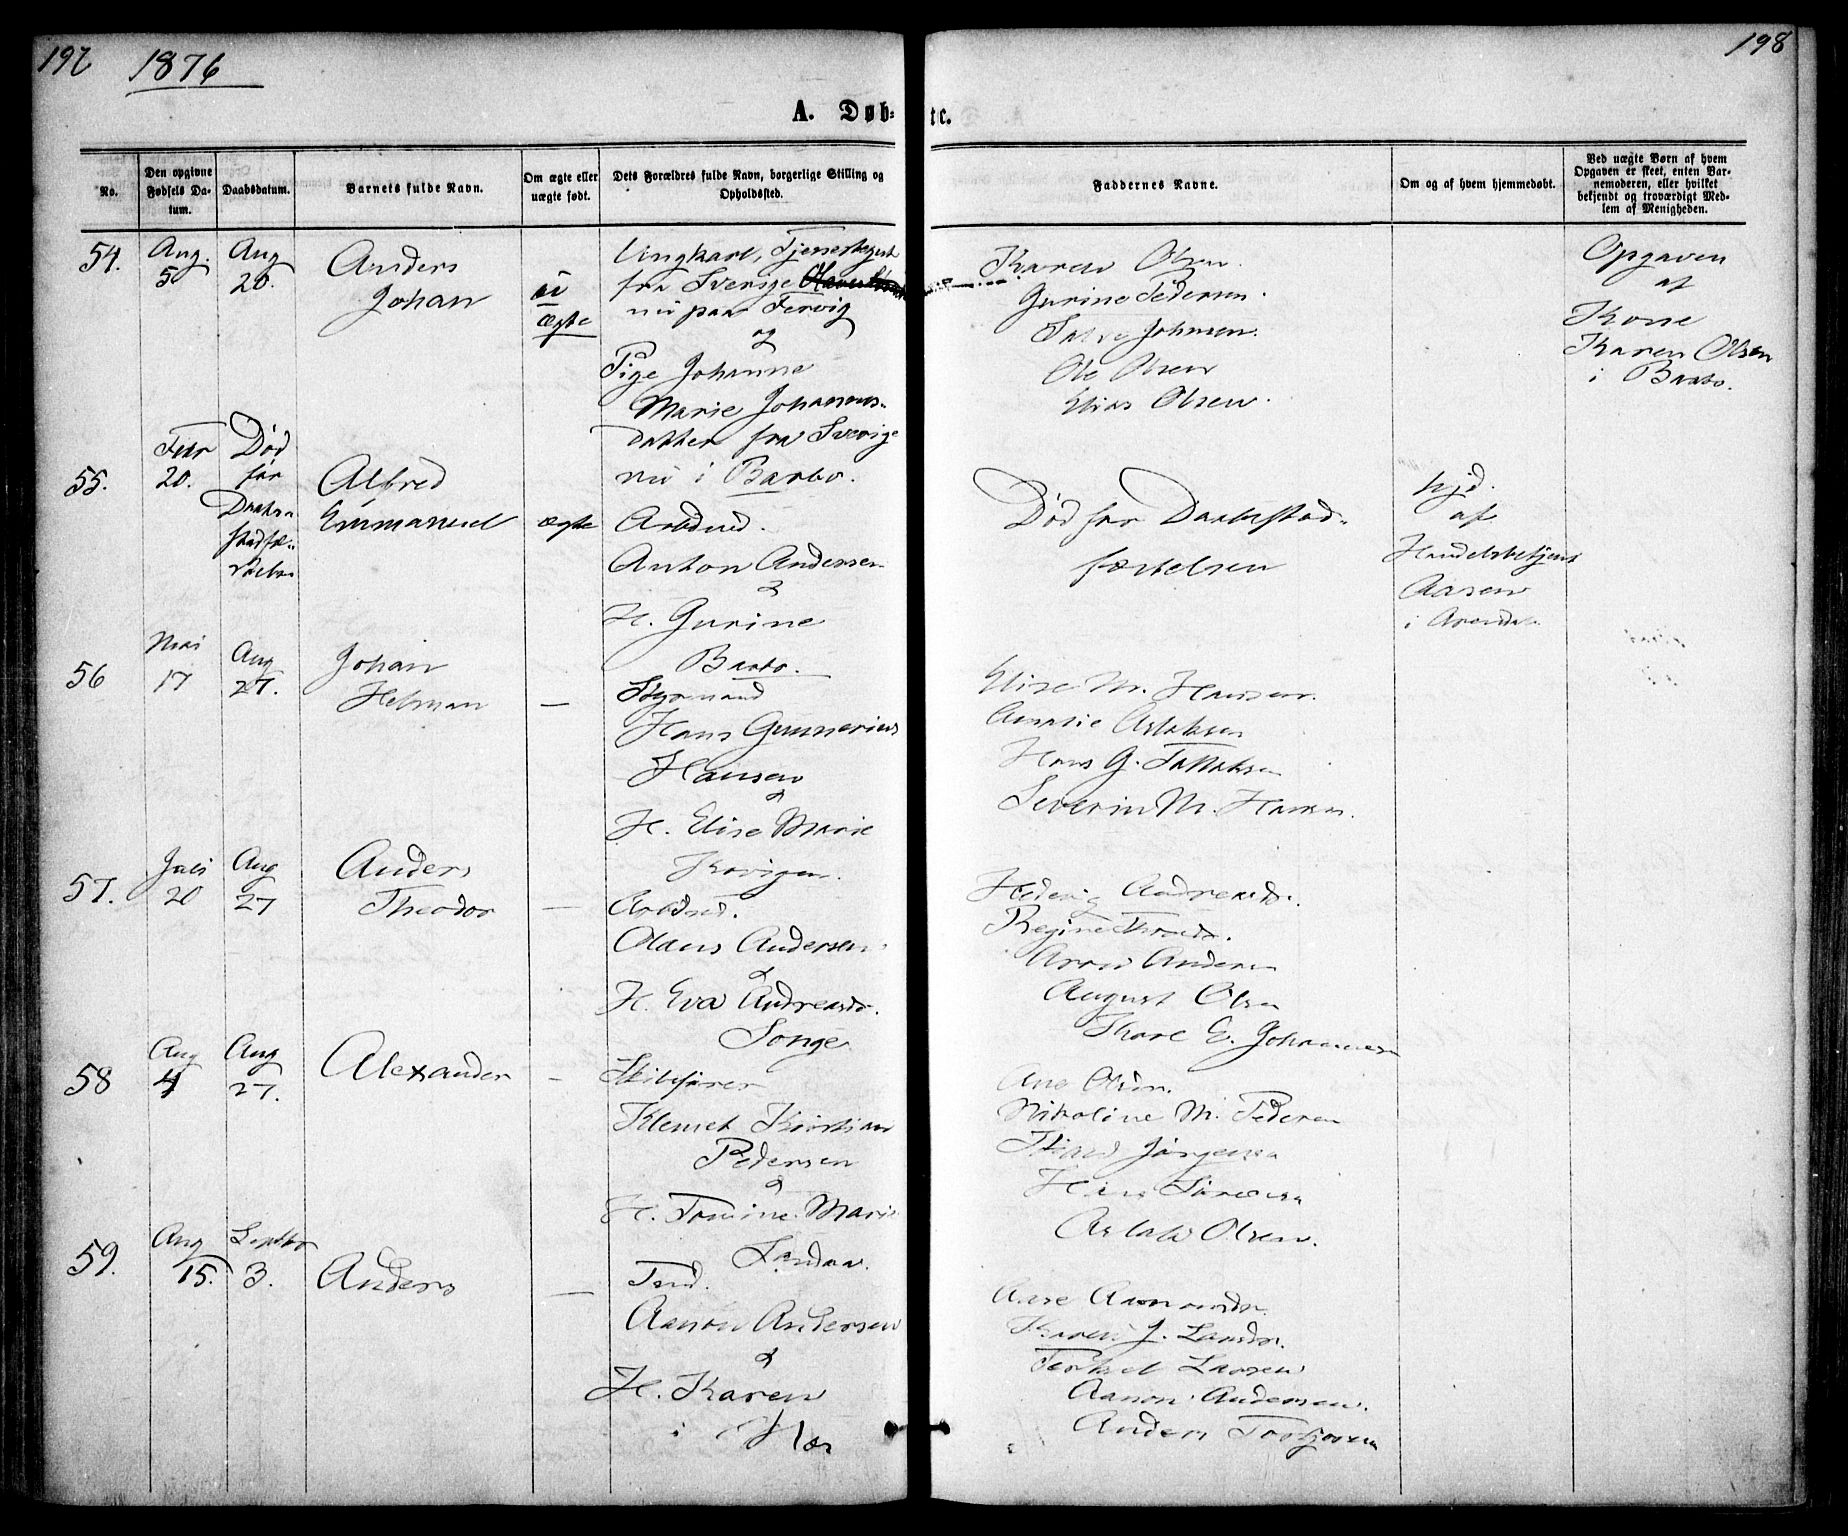 197 1876
198
A. Døb- te.
No.
Den opgivne Fødsels Da- tum.
Daabsdatum.
Barnets fulde Navn.
Om ægte eller uægte født.
Dets Forældres fulde Navn, borgerlige Stilling og Opholdssted.
Faddernes Navne.
Om og af hvem hjemmedøbt.
Ved uægte Børn af hvem Opgaven er skeet, enten Bar- nemoderen, eller hvilket bekjendt og troværdigt Med- lem af Menigheden.
54.
Aug. 5
Aug 20.
Anders
Johan
u
ægte
Ungkarl, Tjenestegut
fra Sverige
nu paa Fervig
og
Pige Johanne
Marie Johannes-
datter fra Sverige
nu i Barbo.
Karen Olsen.
Gurine Pedersen.
Johnsen.
Ole Olsen
Elias Olsen.
Opgaven
af
Kone
Karen Olsen
i Barbo.
55.
Febr 20.
Død
før
Alfred
Emmanuel
ægte
Arbmd.
Anton Andersen
&
H. Gurine
Barbo.
Død før Daabsstad-
fæstelsen
hjd.
af
Handelsbetjent
Aasen
i Arendal
56
Mai 17
Aug 27.
Johan
Helman
—
Styrmand
Hans Gunnerius
Hansen
&
H. Elise Marie
Elise M. Hansen.
Amalie Aslaksen
Hans G.
Severin M. Hansen.
57.
Juli 20
Aug 27
Anders
Theodor
—
Arbmd.
Olaus Andersen
&
H. Eva Andreasdr.
Songe
Hedevig Andreasdr.
Regine
Aron Andersen
August Olsen
Karl E. Johannesen
58
Aug 4
Aug 27.
Alexander
—
Skibsfører
Klemet Kristian
Pedersen
&
H. Tomine Marie
Ane Olsen.
Nikoline M. Pedersen
Jørgensen
Aslak Olsen.
59.
Aug 15.
Septbr 3.
Anders
—
Aanon Andersen
&
H. Karen
i
Karen J. Larsdr.
Terkel Larsen
Aanon Andersen.
Anders